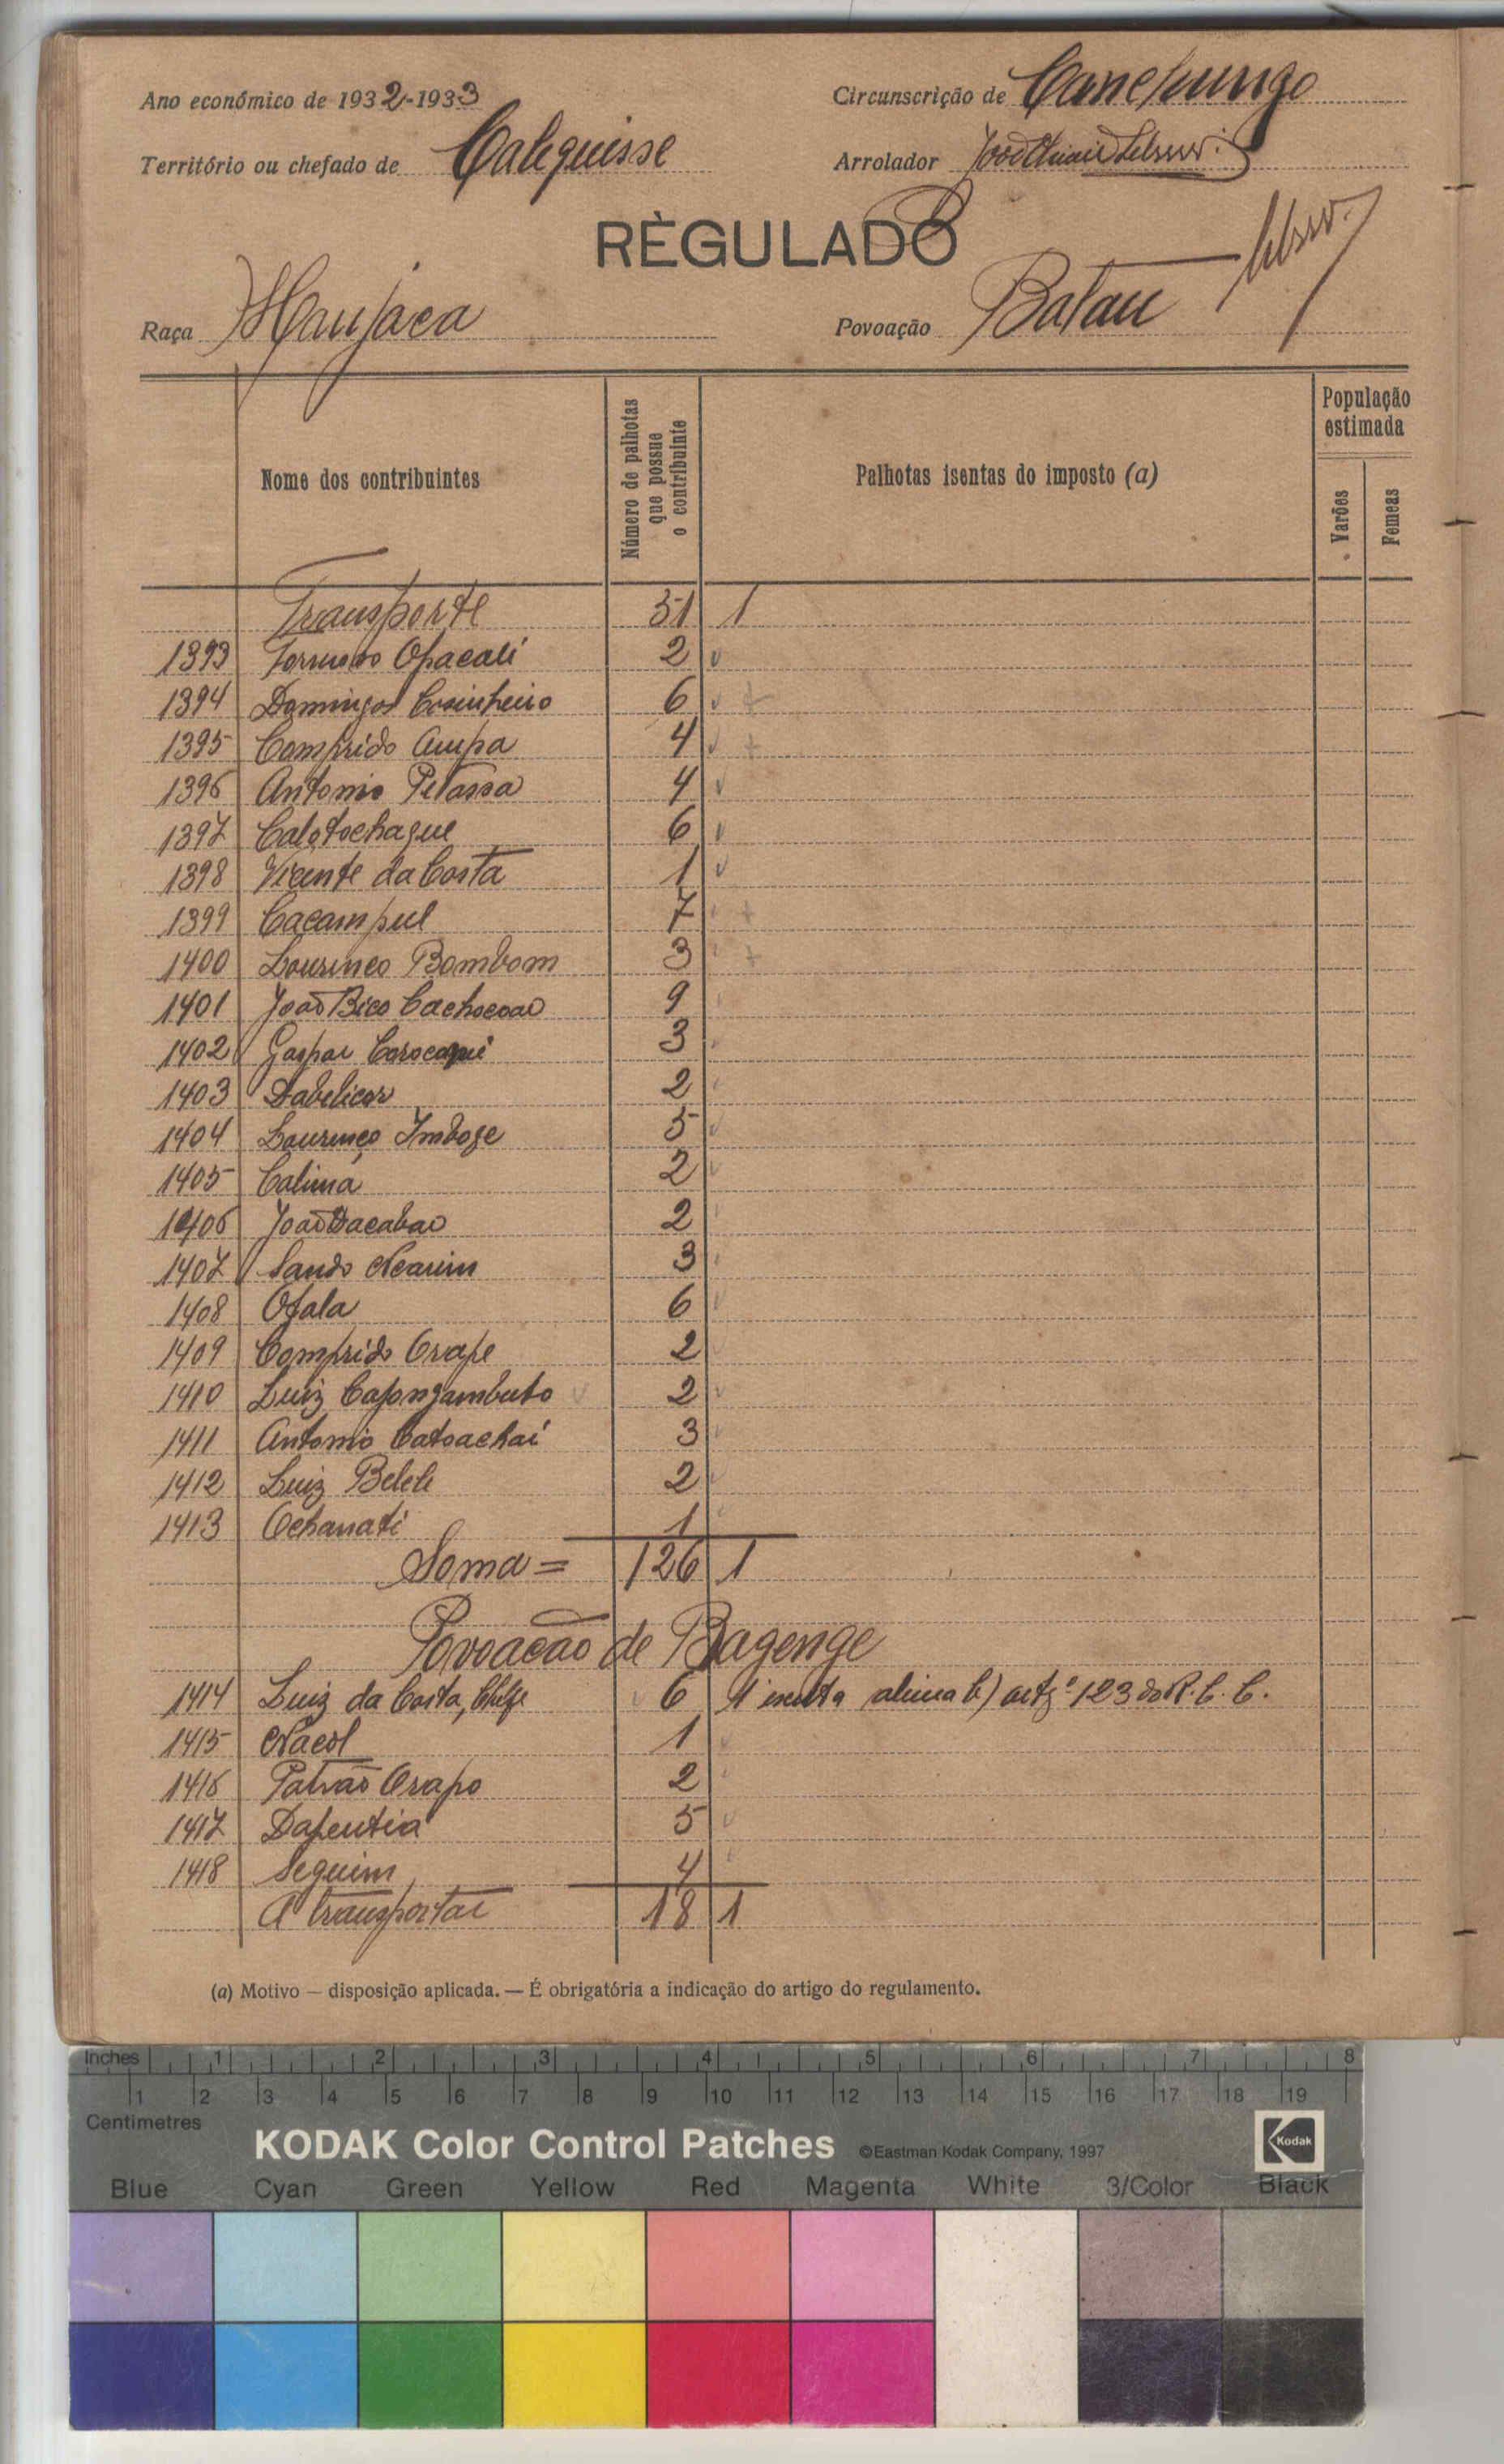 Ano económico de 1932-1933
Circunscrição de Canchungo
Território ou chefado de Calequisse
Arrolador
RÈGULADO
Raça Manjaca
Povoação Batau
Nome dos contribuintes
Número de palhotas que possue o contribuinte
Palhotas isentas do imposto (a)
População estimada
Varões
Femeas
Transporte 51 1
1393 Opacali 2
1394 Domingos Cosinheiro 6
1395 Comprido Aupa 4
1396 Antonio Petassa 4
1397 Calotochague 6
1398 Vicente da Costa 1
1399 Cacampul 7
1400 Lourenco Bombom 3
1401 João Bico Cachocoao 9
1402 Gaspar 3
1403 Dabelicar 2
1404 Lourenço Imboge 5
1405 Calimá 2
1406 João Dacabao 2
1407 Sando Ncarim 3
1408 Ofala 6
1409 Comprido Crape 2
1410 Luiz Capongambuto 2
1411 Antonio Catoachai 3
1412 Luiz Belele 2
1413 Ochanati 1
Soma = 126 1
Povoacão de Bagenge
1414 Luiz da Costa, Chefe 6 1 isenta alinea b) artº 123 do R.C.C.
1415 Nacol 1
1416 Patrão Crapo 2
1417 Dapentia 5
1418 Seguim 4
A transportar 18 1
(a) Motivo — disposição aplicada. — É obrigatória a indicação do artigo do regulamento.
Inches 1 2 3 4 5 6 7 8
1 2 3 4 5 6 7 8 9 10 11 12 13 14 15 16 17 18 19
Centimetres
KODAK Color Control Patches ©Eastman Kodak Company, 1997 Kodak
Blue Cyan Green Yellow Red Magenta White 3/Color Black